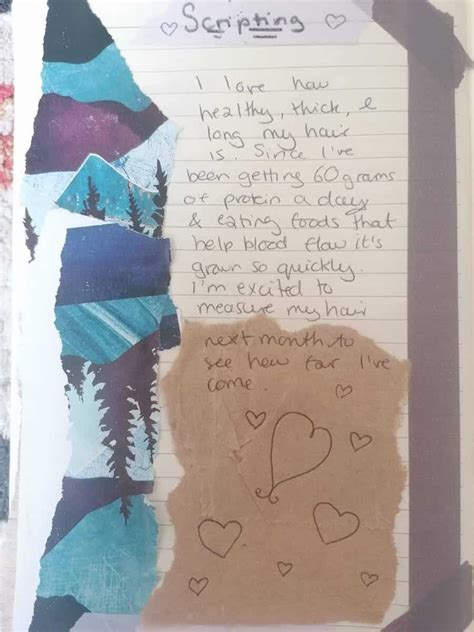 Scripting
I love how
healthy, thick, &
long my hair
is. Since I've
been getting 60 grams
of protein a day
& eating foods that
help blood flow it's
grown so quickly.
I'm excited to
measure my hair
next month to
see how far I've
come.